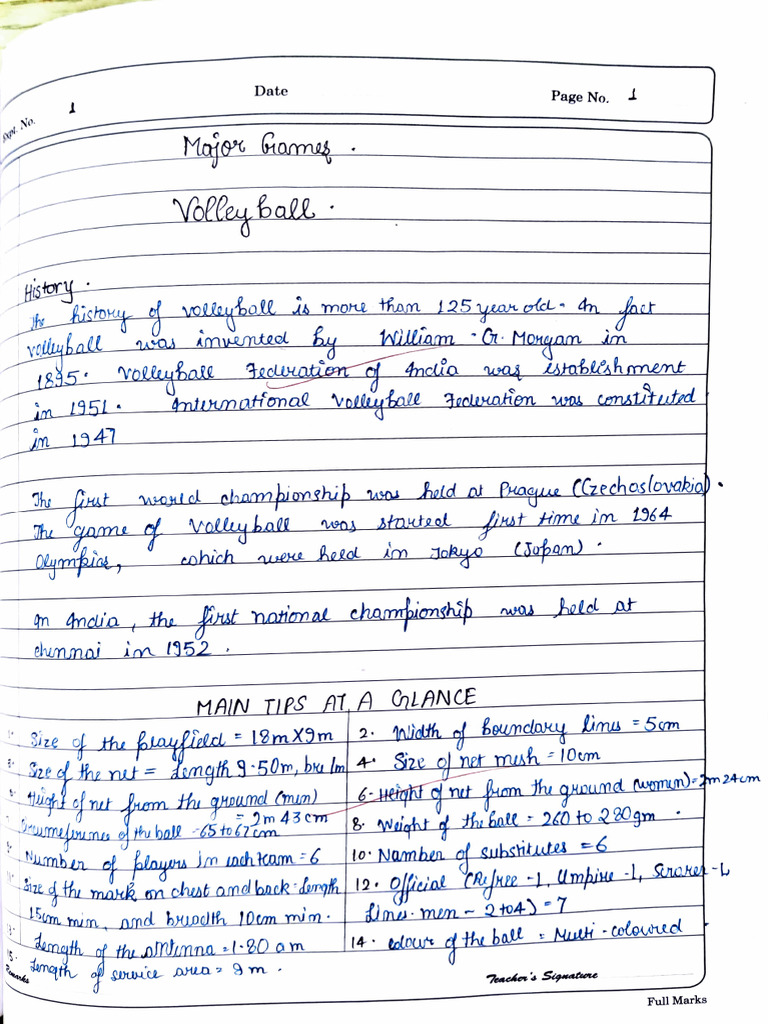 Expt. No. 1 Date Page No. 1
Major Games.
Volleyball.
History.
The history of volleyball is more than 125 year old. In fact
volleyball was invented by William. G. Morgan in
1895. Volleyball Federation of India was establishment
in 1951. International Volleyball Federation was constituted
in 1947
The first world championship was held at Prague (Czechoslovakia).
The game of volleyball was started first time in 1964
Olympics, which were held in Tokyo (Japan).
In India, the first national championship was held at
chennai in 1952.
MAIN TIPS AT A GLANCE
1. Size of the playfield = 18m X 9m
2. Width of boundary lines = 5cm
3. Size of the net = Length 9.50m, bre 1m
4. Size of net mesh = 10cm
5. Height of net from the ground (men)
= 2m 43cm
6. Height of net from the ground (women) = 2m 24cm
7. Circumference of the ball - 65 to 67cm
8. Weight of the ball = 260 to 280gm.
9. Number of players in each team = 6
10. Number of substitutes = 6
11. Size of the mark on chest and back - Length
15cm min, and breadth 10cm min.
12. Official (Refree - 1, Umpire - 1, Scrorer - 1,
Lines-men - 2 to 4) = 7
13. Length of the antenna = 1.80 am
14. colour of the ball = Multi-coloured
15. Length of service area = 9m.
Remarks
Teacher's Signature
Full Marks